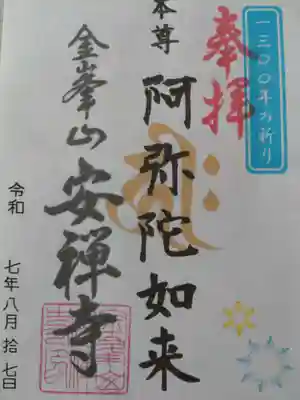 一三〇〇年の祈り
奉拝
本尊
阿弥陀如来
金峯山
安禅寺
令和 七年八月 拾七日